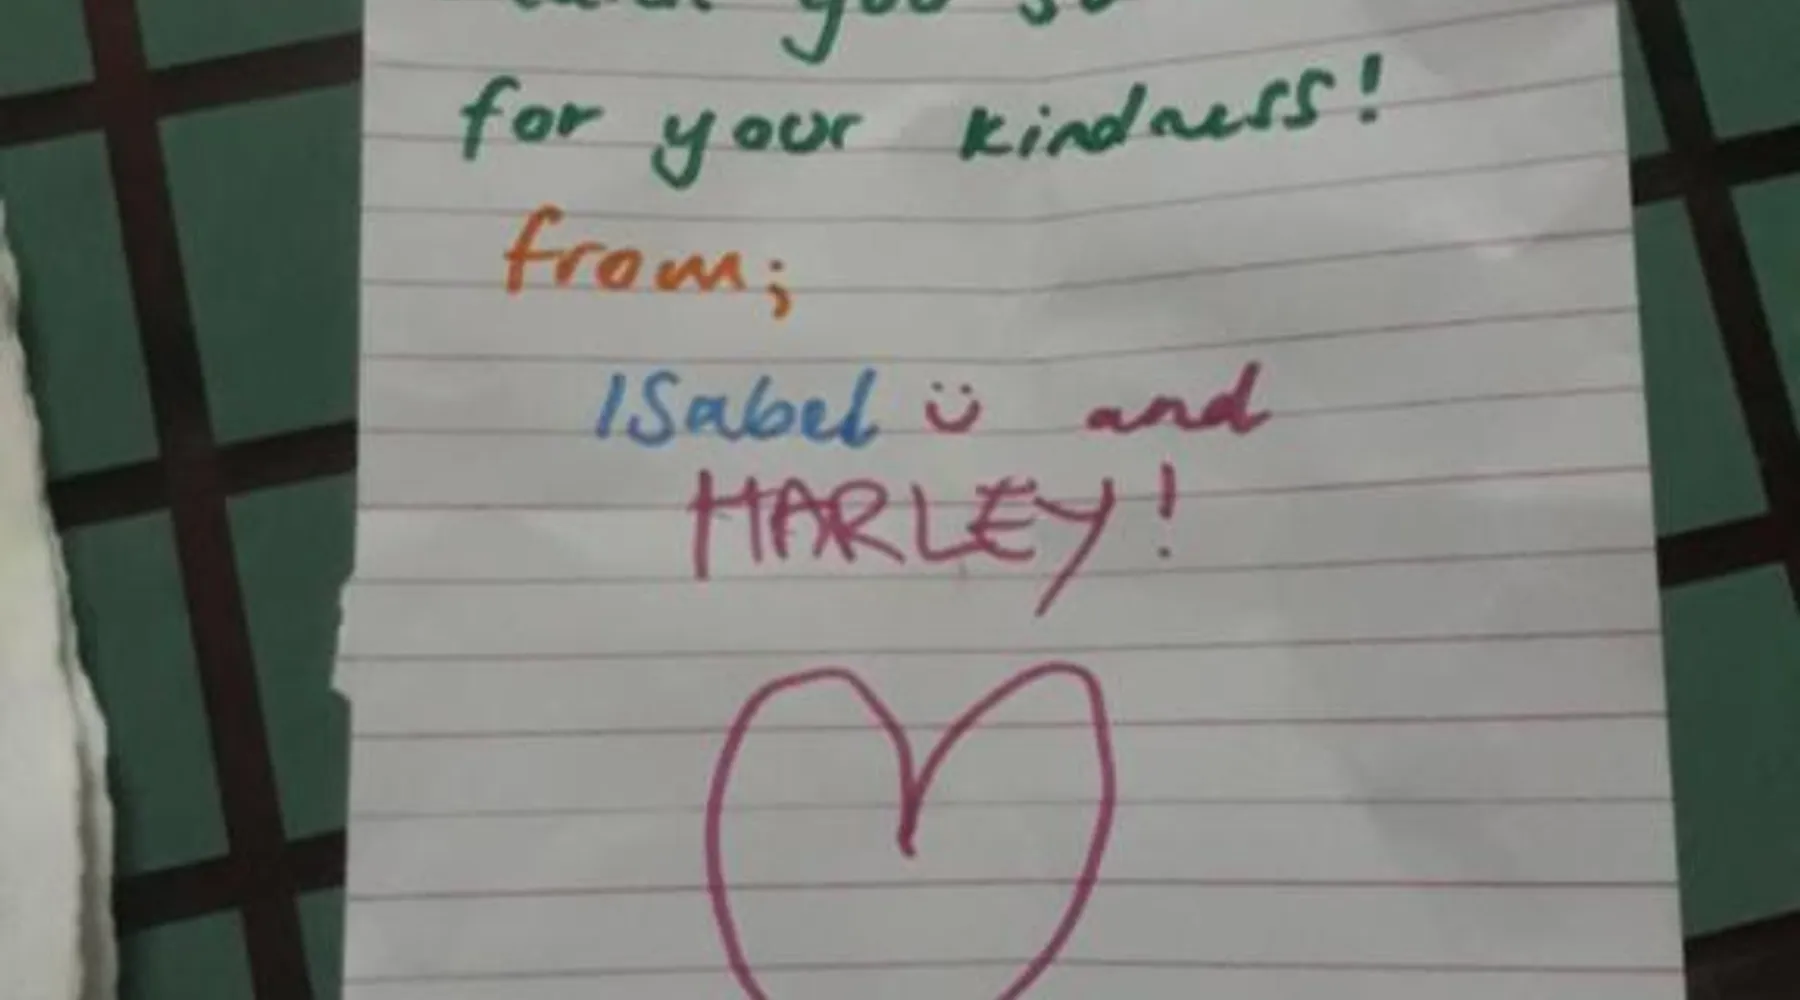 you so
for your kindness!
from;
ISabel and
HARLEY!